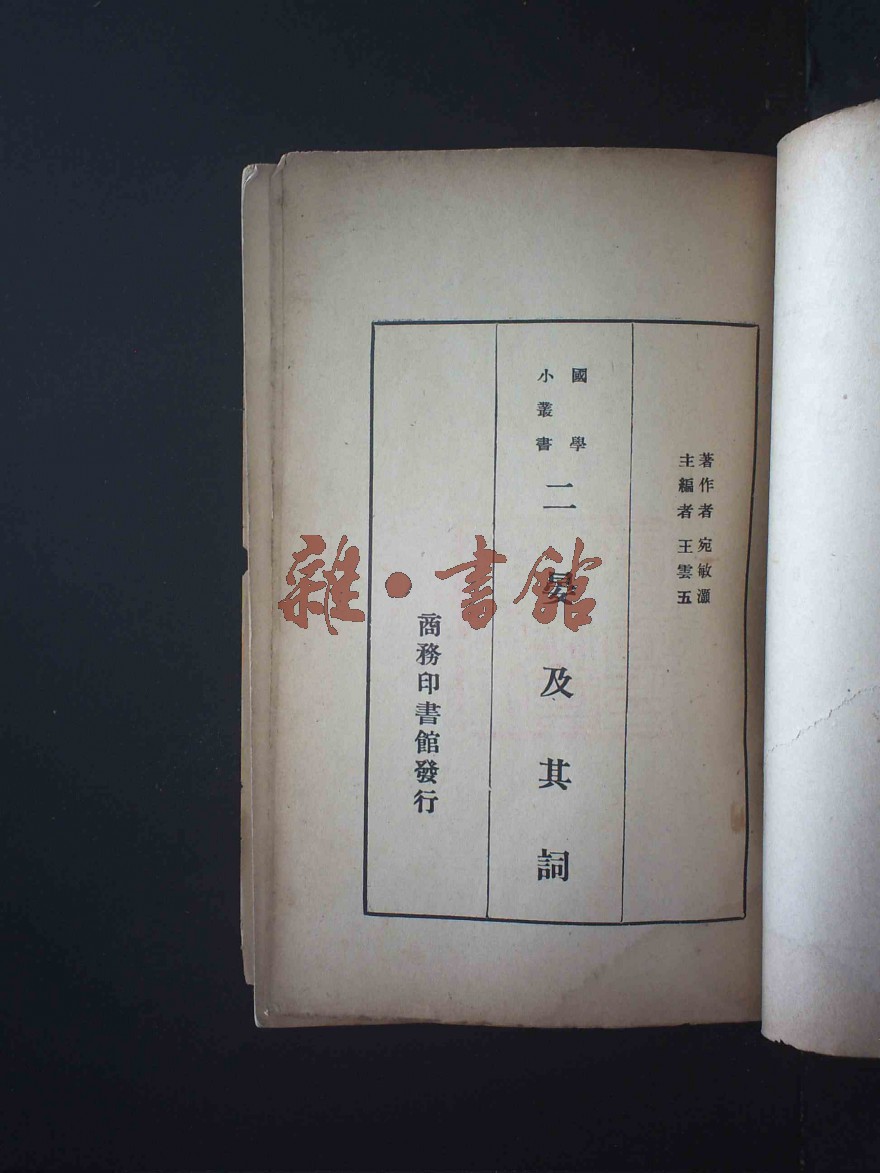 著作者 宛敏灝
主編者 王雲五
國學
小叢書
二晏及其詞
商務印書館發行
雜·書館